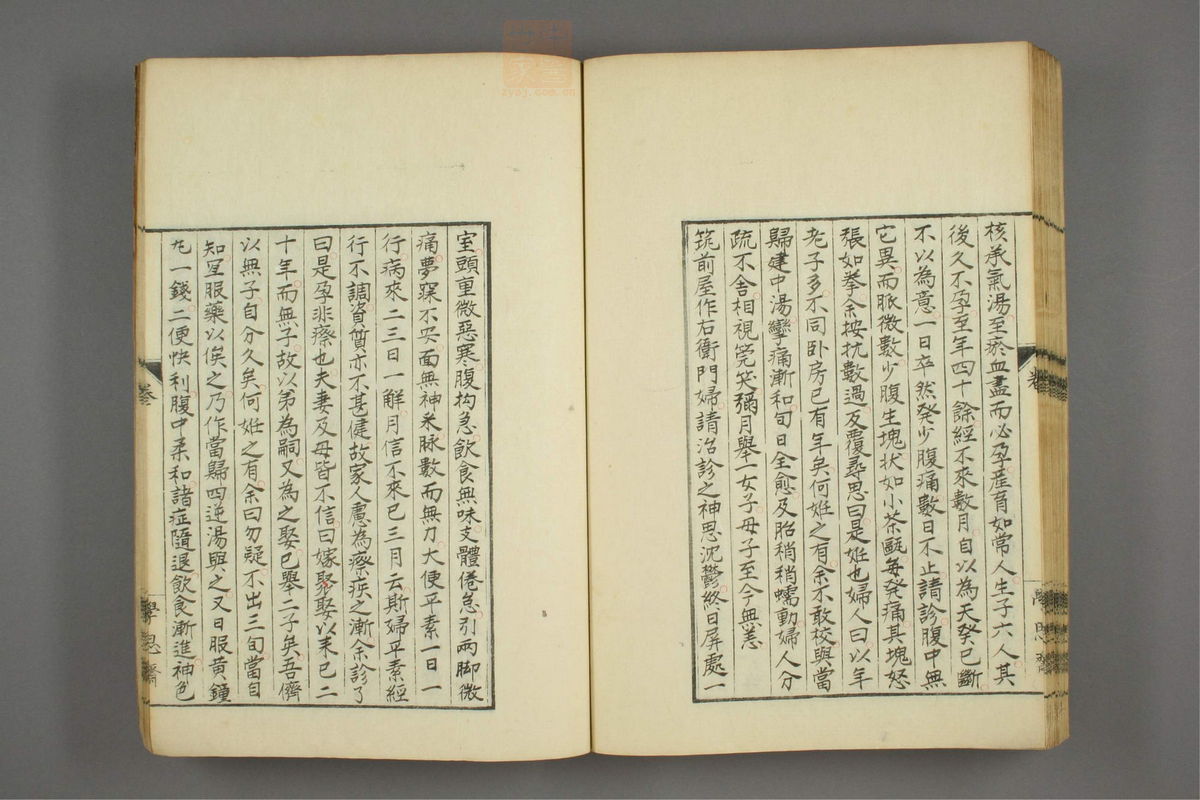 核承氣湯至瘀血盡而必孕產育如常人生子六人其
後久不孕至年四十餘經不來數月自以為天癸已斷
不以為意一日卒然発少腹痛數日不止請診腹中無
它異而脈微數少腹生塊状如小茶甌每発痛其塊怒
張如拳余按抗數過反覆尋思曰是姙也婦人曰以年
老子多不同臥房已有年矣何姙之有余不敢校與當
歸建中湯攣痛漸和旬日全愈及胎稍稍蠕動婦人分
疏不舍相視莞笑彌月舉一女子母子至今無恙
筑前屋作右衛門婦請治診之神思沈鬱終日屏處一
室頭重微惡寒腹拘急飲食無味支體倦怠引兩脚微
痛夢寐不安面無神釆脉數而無力大便平素一日一
行病來二三日一解月信不來已三月云斯婦平素經
行不調資質亦不甚健故家人慮為瘵疾之漸余診了
曰是孕非瘵也夫妻及母皆不信曰嫁娶以来已二
十年而無子故以弟為嗣又為之娶已舉二子矣吾儕
以無子自分久矣何姙之有余曰勿疑不出三旬當自
知窐服藥以俟之乃作當歸四逆湯與之又日服黄鐘
丸一錢二便快利腹中柔和諸症隨退飲食漸進神色
卷
學思齋
zyoj.com.cn